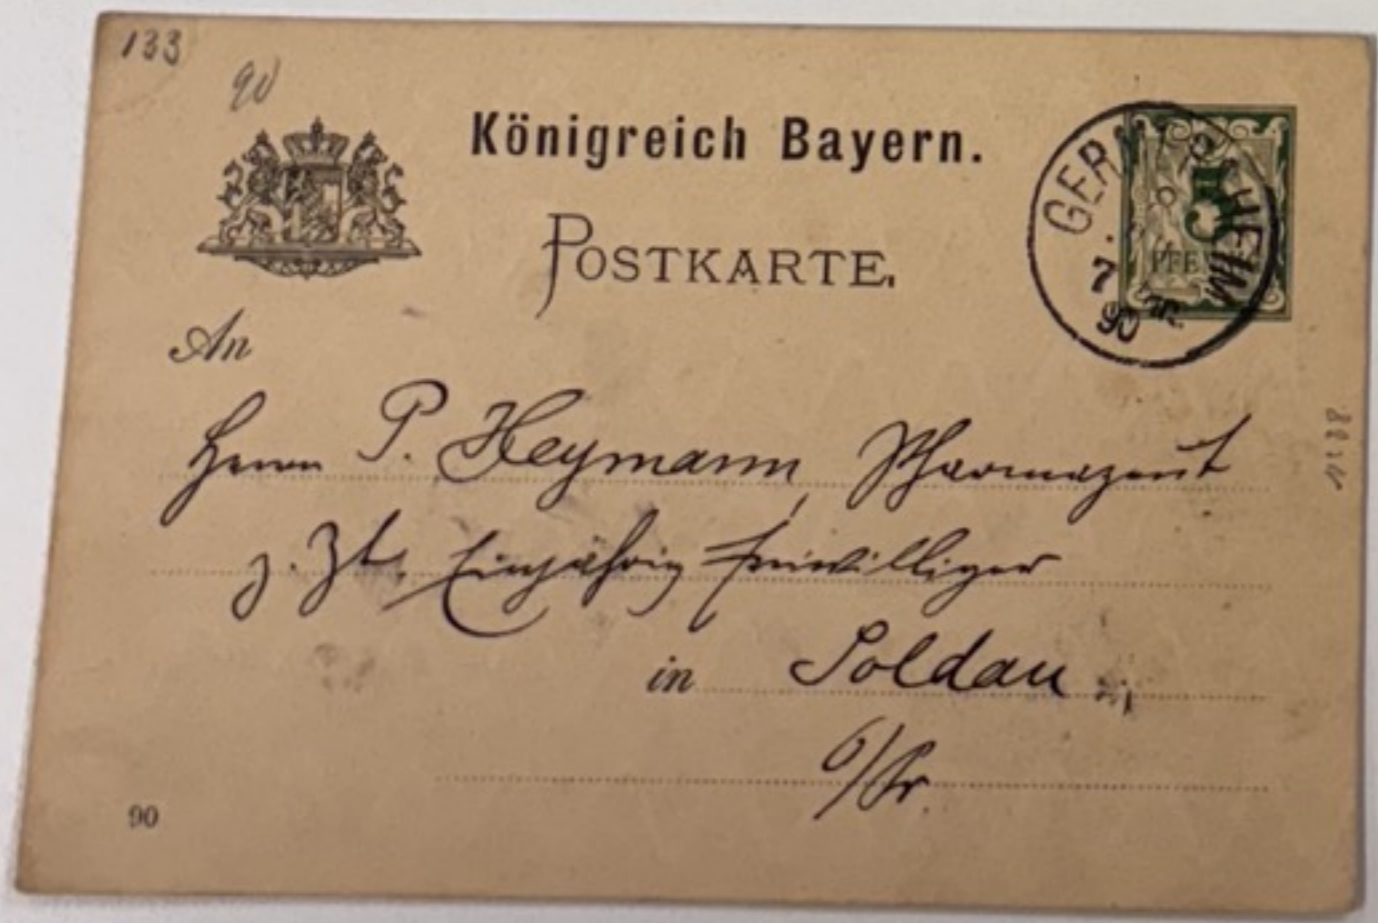 133
90
Königreich Bayern.
POSTKARTE.
GERMERSHEIM
7
90
5
PFE
An
Herrn P. Heymann, Pharmazeut
z. Zt. Einjährig freiwilliger
in Soldau
O/Pr.
90